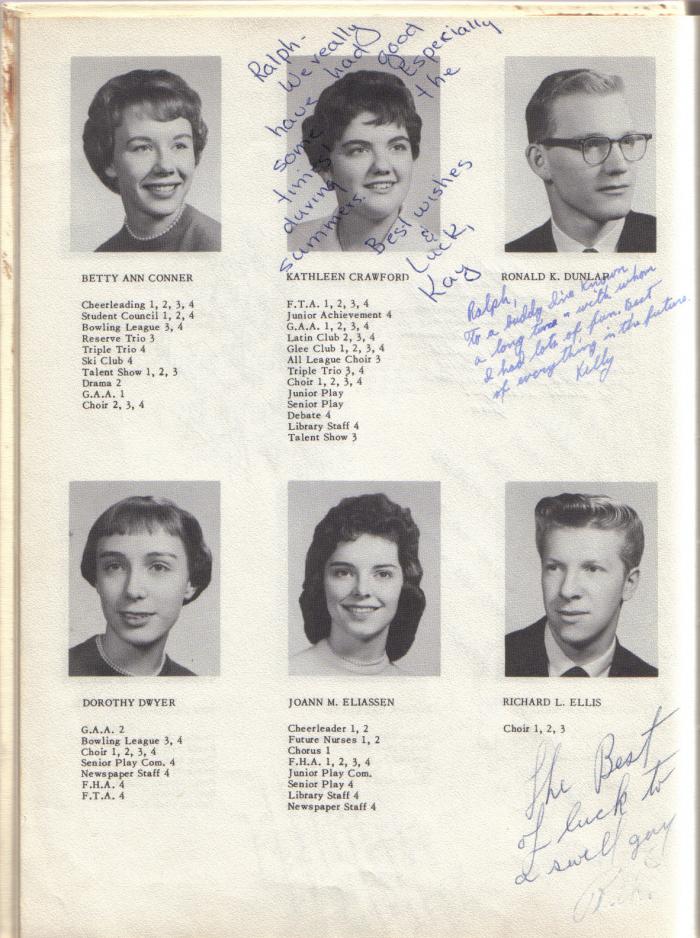 Ralph-
We really
have had good
some especially
times! the
during
summers.
Best wishes
&
Luck,
Kay
BETTY ANN CONNER
Cheerleading 1, 2, 3, 4
Student Council 1, 2, 4
Bowling League 3, 4
Reserve Trio 3
Triple Trio 4
Ski Club 4
Talent Show 1, 2, 3
Drama 2
G.A.A. 1
Choir 2, 3, 4
KATHLEEN CRAWFORD
F.T.A. 1, 2, 3, 4
Junior Achievement 4
G.A.A. 1, 2, 3, 4
Latin Club 2, 3, 4
Glee Club 1, 2, 3, 4
All League Choir 3
Triple Trio 3, 4
Choir 1, 2, 3, 4
Junior Play
Senior Play
Debate 4
Library Staff 4
Talent Show 3
RONALD K. DUNLAP
Ralph,
To a buddy I've known
a long time & with whom
I had lots of fun. Best
of everything in the future
Kelly
DOROTHY DWYER
G.A.A. 2
Bowling League 3, 4
Choir 1, 2, 3, 4
Senior Play Com. 4
Newspaper Staff 4
F.H.A. 4
F.T.A. 4
JOANN M. ELIASSEN
Cheerleader 1, 2
Future Nurses 1, 2
Chorus 1
F.H.A. 1, 2, 3, 4
Junior Play Com.
Senior Play 4
Library Staff 4
Newspaper Staff 4
RICHARD L. ELLIS
Choir 1, 2, 3
The Best
of luck to
a swell guy